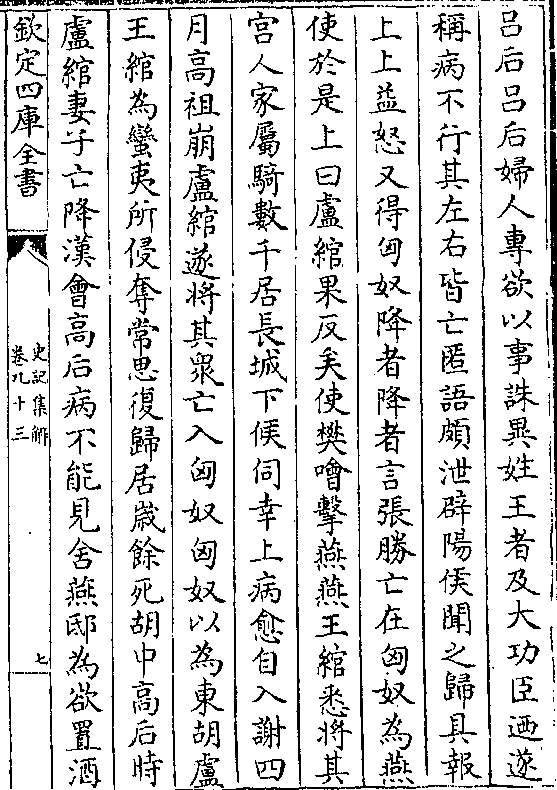 呂后呂后婦人專欲以事誅異姓王者及大功臣迺遂
稱病不行其左右皆亡匿語頗泄辟陽侯聞之歸具報
上上益怒又得匈奴降者降者言張勝亡在匈奴為燕
使於是上曰盧綰果反矣使樊噲擊燕燕王綰悉將其
宫人家屬騎數千居長城下候伺幸上病愈自入謝四
月高祖崩盧綰遂將其衆亡入匈奴匈奴以為東胡盧
王綰為蠻夷所侵奪常思復歸居嵗餘死胡中高后時
盧綰妻子亡降漢會高后病不能見舍燕邸為欲置酒
欽定四庫全書
史記集解
卷九十三
七